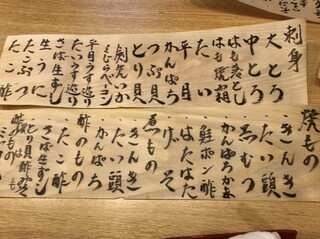 刺身
大とろ
中とろ
はも落とし
はも焼霜
たい
平目
かんぱち
つぶ貝
とり貝
剣先いか
平目うす造り
たいうす造り
さば生ずし
生うに
たこぶつ
たこ酢
焼もの
・きんき
・たい頭
・黒むつ
・かんぱちかま
・鮭ポン酢
・はたはた
・げそ
煮もの
・きんき
・たい頭
・かんぱち
酢のもの
・たこ酢
・さば生ずし
・とり貝酢みそ